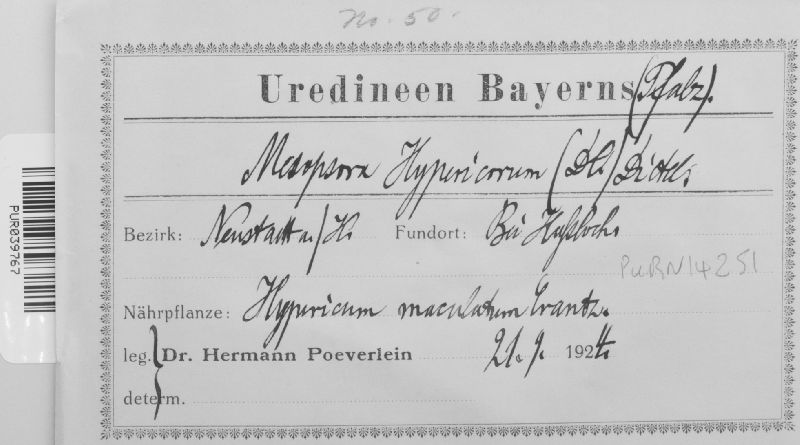 No. 50.
Uredineen Bayerns (Pfalz).
Mesopsora Hypericorum (DC.) Dietel.
Bezirk: Neustadt a/H. Fundort: Bei Haßloch.
PURN14251
Nährpflanze: Hypericum maculatum Crantz.
leg. Dr. Hermann Poeverlein 21. 9. 1924.
determ.
PUR039767